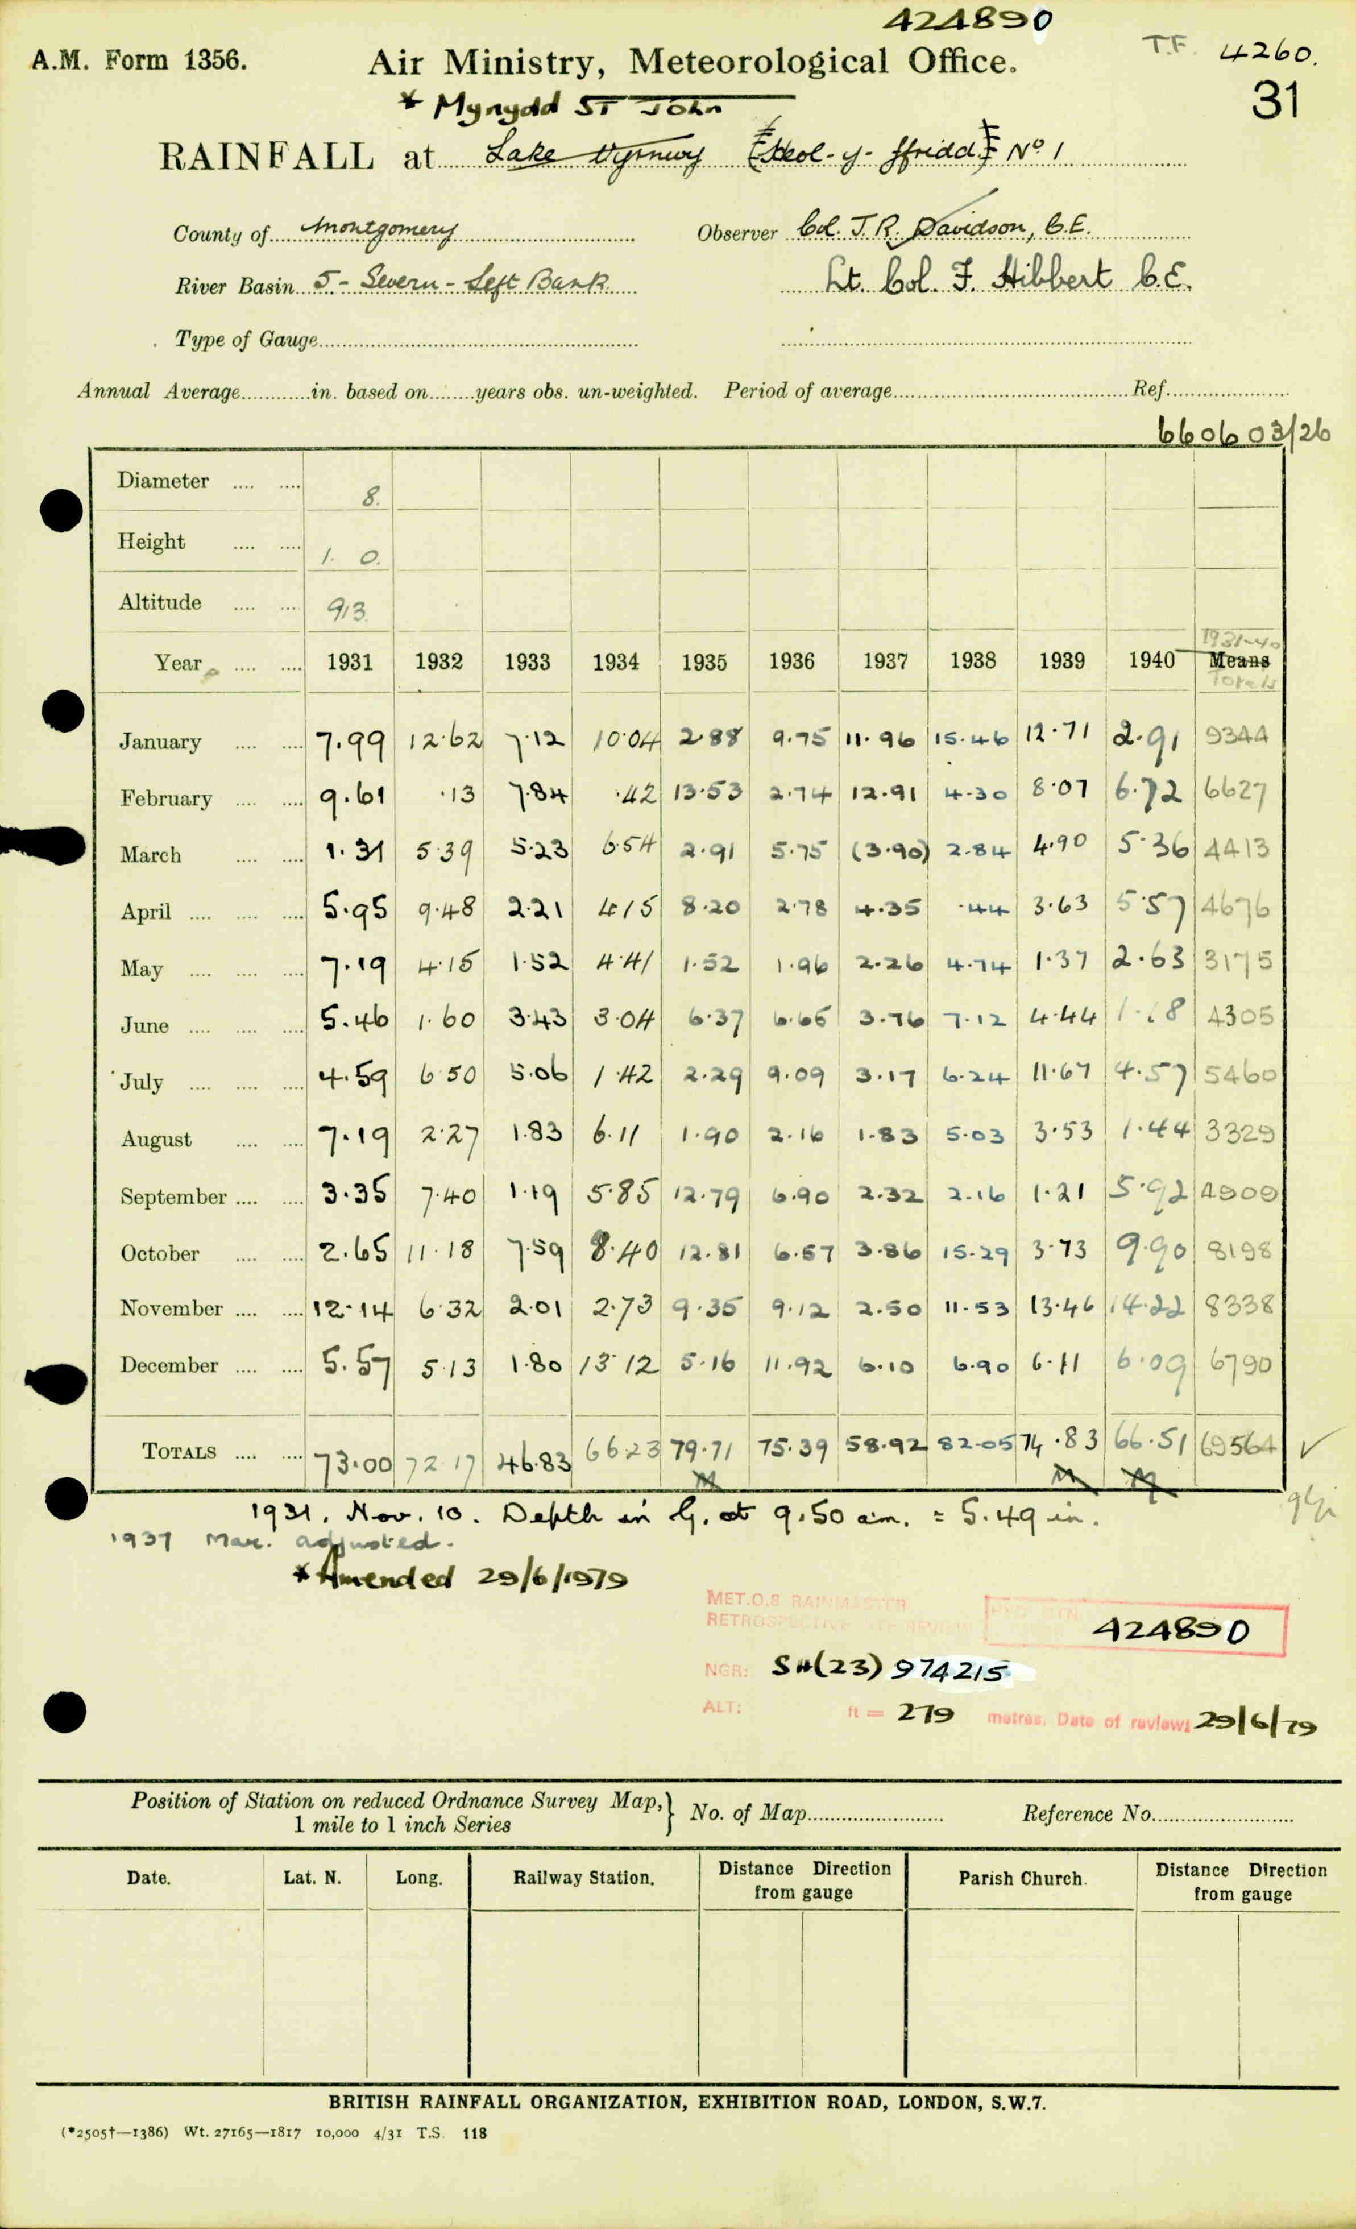 424890
A.M. Form 1356. Air Ministry, Meteorological Office. T.F. 4260.
31
* Mynydd ST John
RAINFALL at Lake Vyrnwy (Heol-y-ffridd) No 1
County of Montgomery Observer Col. J.R. Davidson, C.E.
River Basin 5 - Severn - Left Bank Lt. Col. F. Hibbert C.E.
Type of Gauge
Annual Average in. based on years obs. un-weighted. Period of average Ref.
660603/26
Diameter 8.
Height 1. 0.
Altitude 913.
1931-40
Year 1931 1932 1933 1934 1935 1936 1937 1938 1939 1940 Means
Totals
January 7.99 12.62 7.12 10.04 2.88 9.75 11.96 15.46 12.71 2.91 9344
February 9.61 .13 7.84 .42 13.53 2.74 12.91 4.30 8.07 6.72 6627
March 1.31 5.39 5.23 6.54 2.91 5.75 (3.90) 2.84 4.90 5.36 4413
April 5.95 9.48 2.21 4.15 8.20 2.78 4.35 .44 3.63 5.57 4676
May 7.19 4.15 1.52 4.41 1.52 1.96 2.26 4.74 1.37 2.63 3175
June 5.46 1.60 3.43 3.04 6.37 6.65 3.76 7.12 4.44 1.18 4305
July 4.59 6.50 5.06 1.42 2.29 9.09 3.17 6.24 11.67 4.57 5460
August 7.19 2.27 1.83 6.11 1.90 2.16 1.83 5.03 3.53 1.44 3329
September 3.35 7.40 1.19 5.85 12.79 6.90 2.32 2.16 1.21 5.92 4909
October 2.65 11.18 7.59 8.40 12.81 6.57 3.86 15.29 3.73 9.90 8198
November 12.14 6.32 2.01 2.73 9.35 9.12 2.50 11.53 13.46 14.22 8338
December 5.57 5.13 1.80 13.12 5.16 11.92 6.10 6.90 6.11 6.09 6790
TOTALS 73.00 72.17 46.83 66.23 79.71 75.39 58.92 82.05 74.83 66.51 69564 ✓
M M M
1931. Nov. 10. Depth in G. at 9.50 am. = 5.49 in.
1937 Mar. adjusted.
* Amended 29/6/1979
MET.O.8 RAINMASTER
RETROSPECTIVE SITE REVIEW 424890
NGR: SH(23) 974215
ALT: ft = 279 metres. Date of review: 29/6/79
Position of Station on reduced Ordnance Survey Map, } No. of Map Reference No.
1 mile to 1 inch Series
Date. Lat. N. Long. Railway Station. Distance Direction from gauge Parish Church. Distance Direction from gauge
BRITISH RAINFALL ORGANIZATION, EXHIBITION ROAD, LONDON, S.W.7.
(*2505†—1386) Wt. 27165—1817 10,000 4/31 T.S. 118